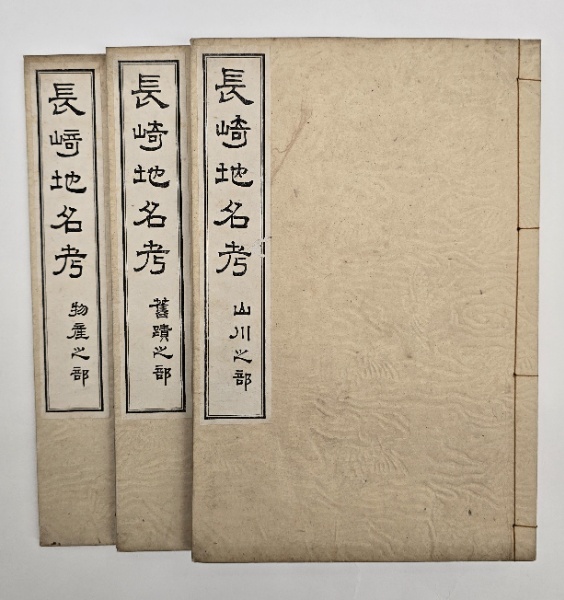 長﨑地名考
山川之部
長﨑地名考
舊蹟之部
長﨑地名考
物產之部